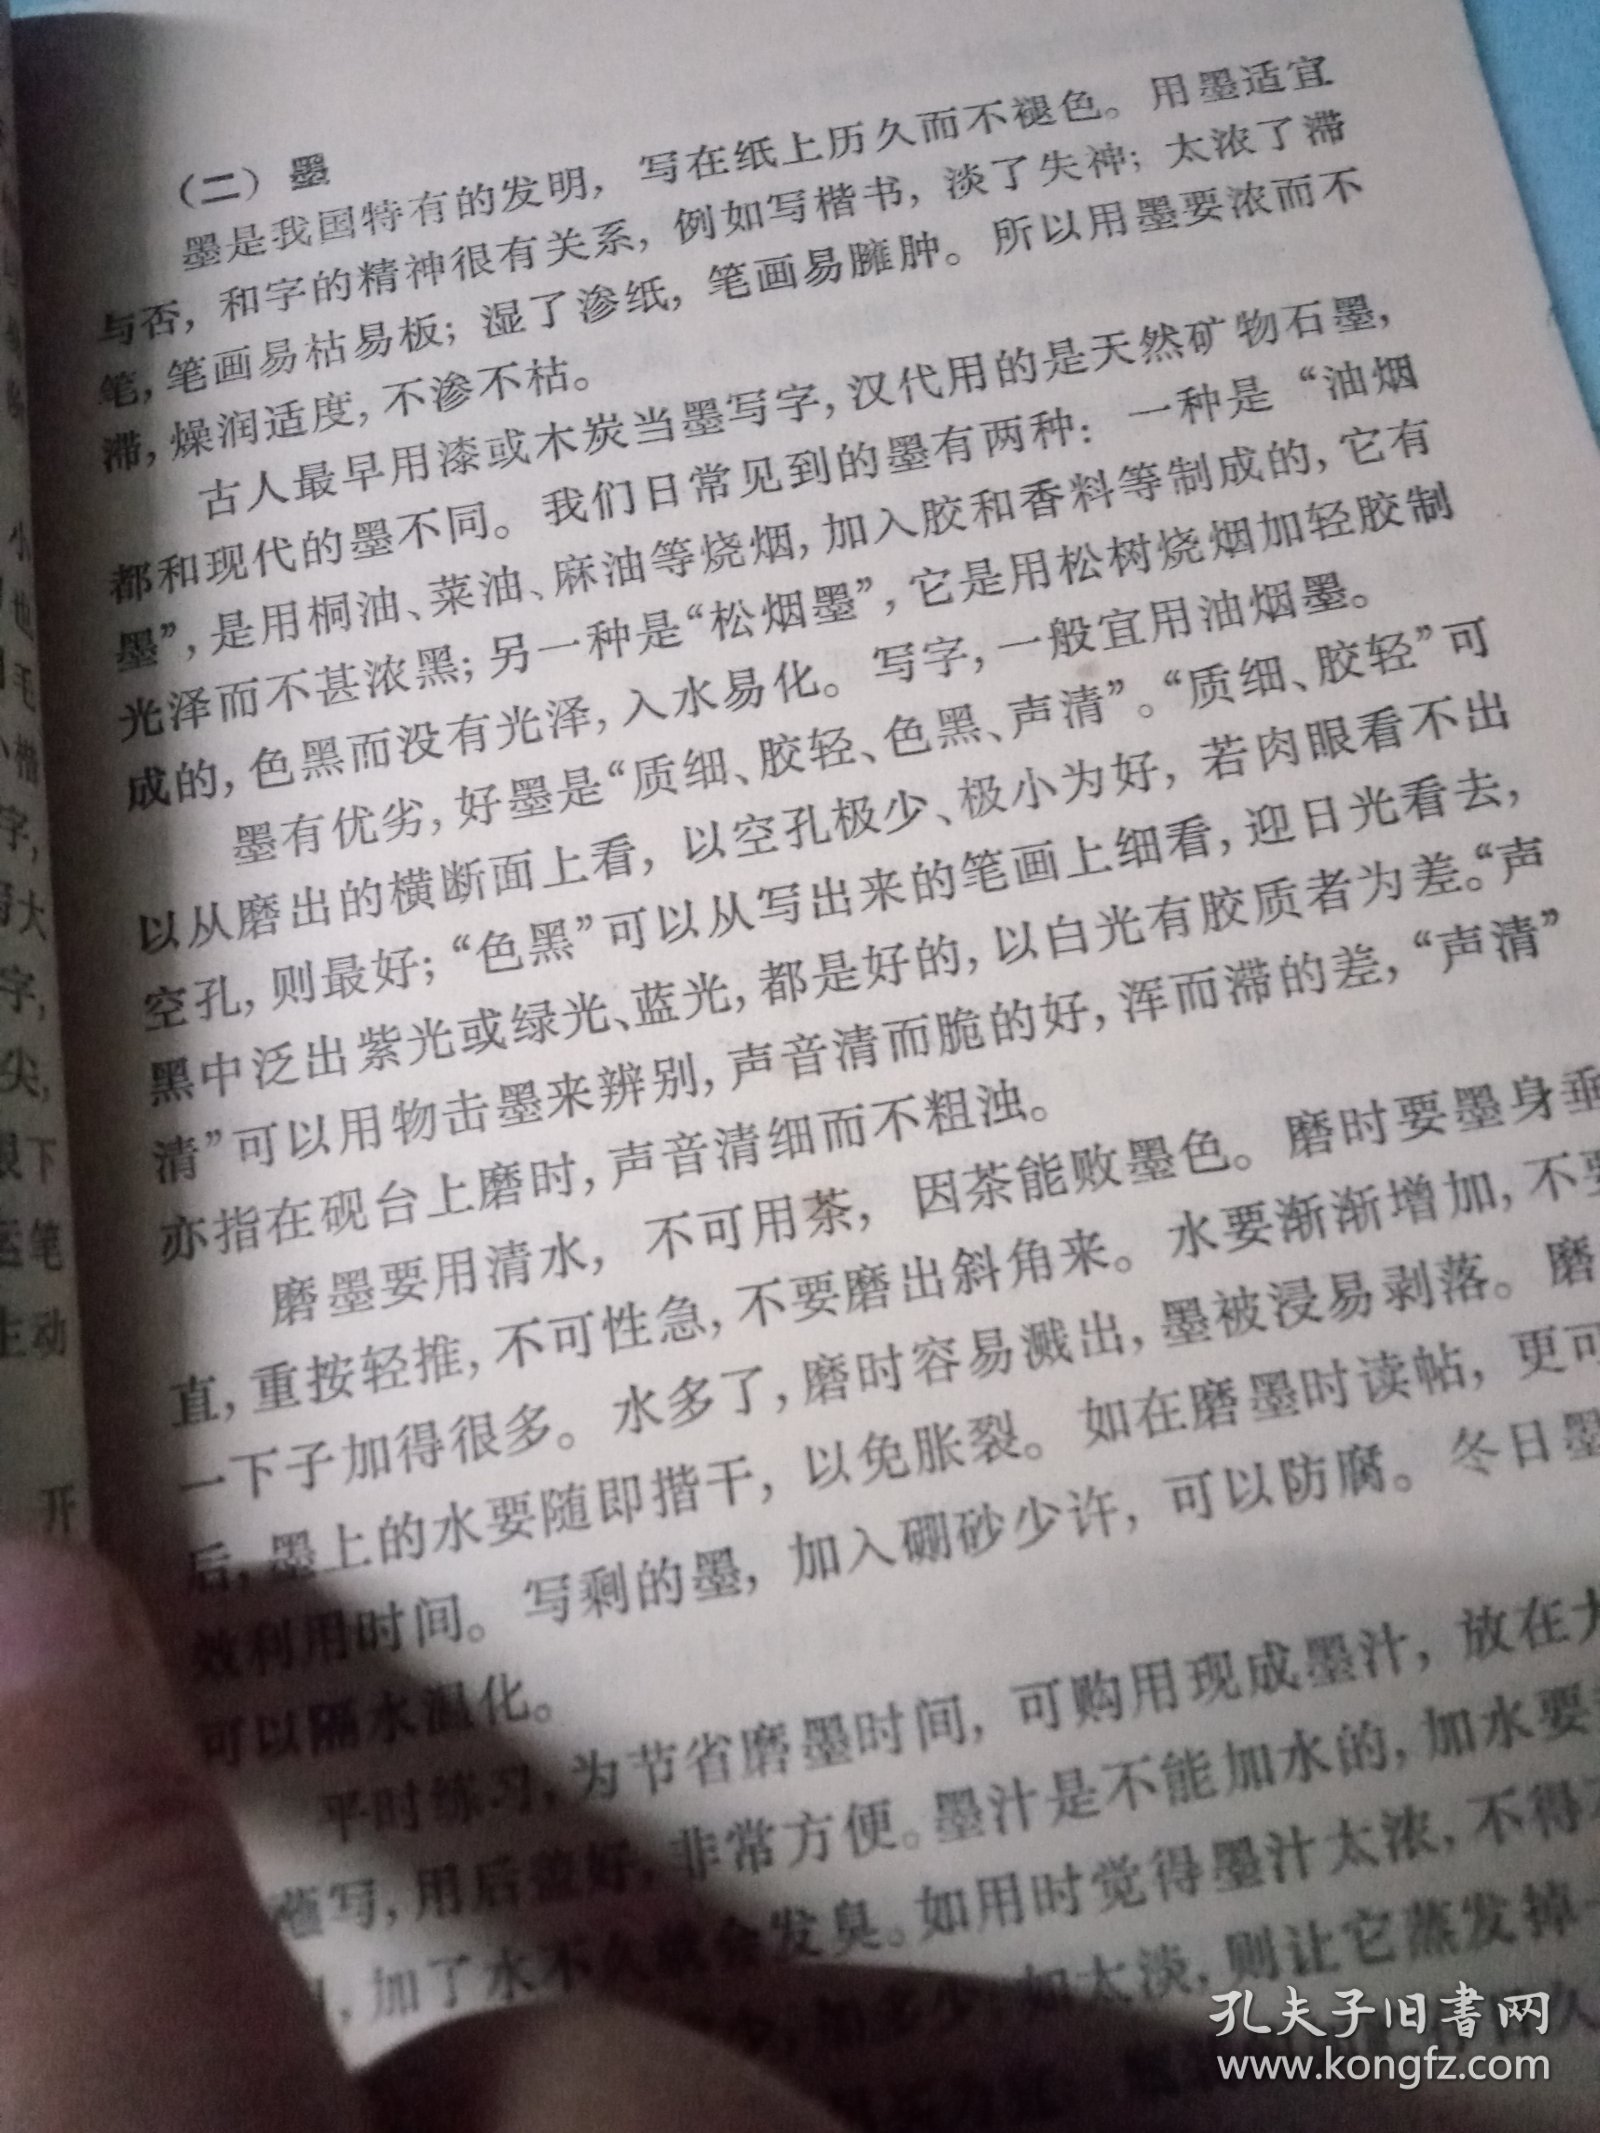 （二）墨
墨是我国特有的发明，写在纸上历久而不褪色。用墨适宜
与否，和字的精神很有关系，例如写楷书，淡了失神；太浓了滞
笔，笔画易枯易板；湿了渗纸，笔画易臃肿。所以用墨要浓而不
滞，燥润适度，不渗不枯。
古人最早用漆或木炭当墨写字，汉代用的是天然矿物石墨，
都和现代的墨不同。我们日常见到的墨有两种：一种是“油烟
墨”，是用桐油、菜油、麻油等烧烟，加入胶和香料等制成的，它有
光泽而不甚浓黑；另一种是“松烟墨”，它是用松树烧烟加轻胶制
成的，色黑而没有光泽，入水易化。写字，一般宜用油烟墨。
墨有优劣，好墨是“质细、胶轻、色黑、声清”。“质细、胶轻”可
以从磨出的横断面上看，以空孔极少、极小为好，若肉眼看不出
空孔，则最好；“色黑”可以从写出来的笔画上细看，迎日光看去，
黑中泛出紫光或绿光、蓝光，都是好的，以白光有胶质者为差。“声
清”可以用物击墨来辨别，声音清而脆的好，浑而滞的差，“声清”
亦指在砚台上磨时，声音清细而不粗浊。
磨墨要用清水，不可用茶，因茶能败墨色。磨时要墨身垂
直，重按轻推，不可性急，不要磨出斜角来。水要渐渐增加，不要
一下子加得很多。水多了，磨时容易溅出，墨被浸易剥落。磨
后，墨上的水要随即揩干，以免胀裂。如在磨墨时读帖，更可
效利用时间。写剩的墨，加入硼砂少许，可以防腐。冬日墨
可以隔水温化。
平时练习，为节省磨墨时间，可购用现成墨汁，放在
蘸写，用后盖好，非常方便。墨汁是不能加水的，加水要
，加了水不久就会发臭。如用时觉得墨汁太浓，不得不
如太淡，则让它蒸发掉一
久
小
也
毛
小楷
字，
写大
字，
尖，
跟下
运笔
生动
开
孔夫子旧书网
www.kongfz.com